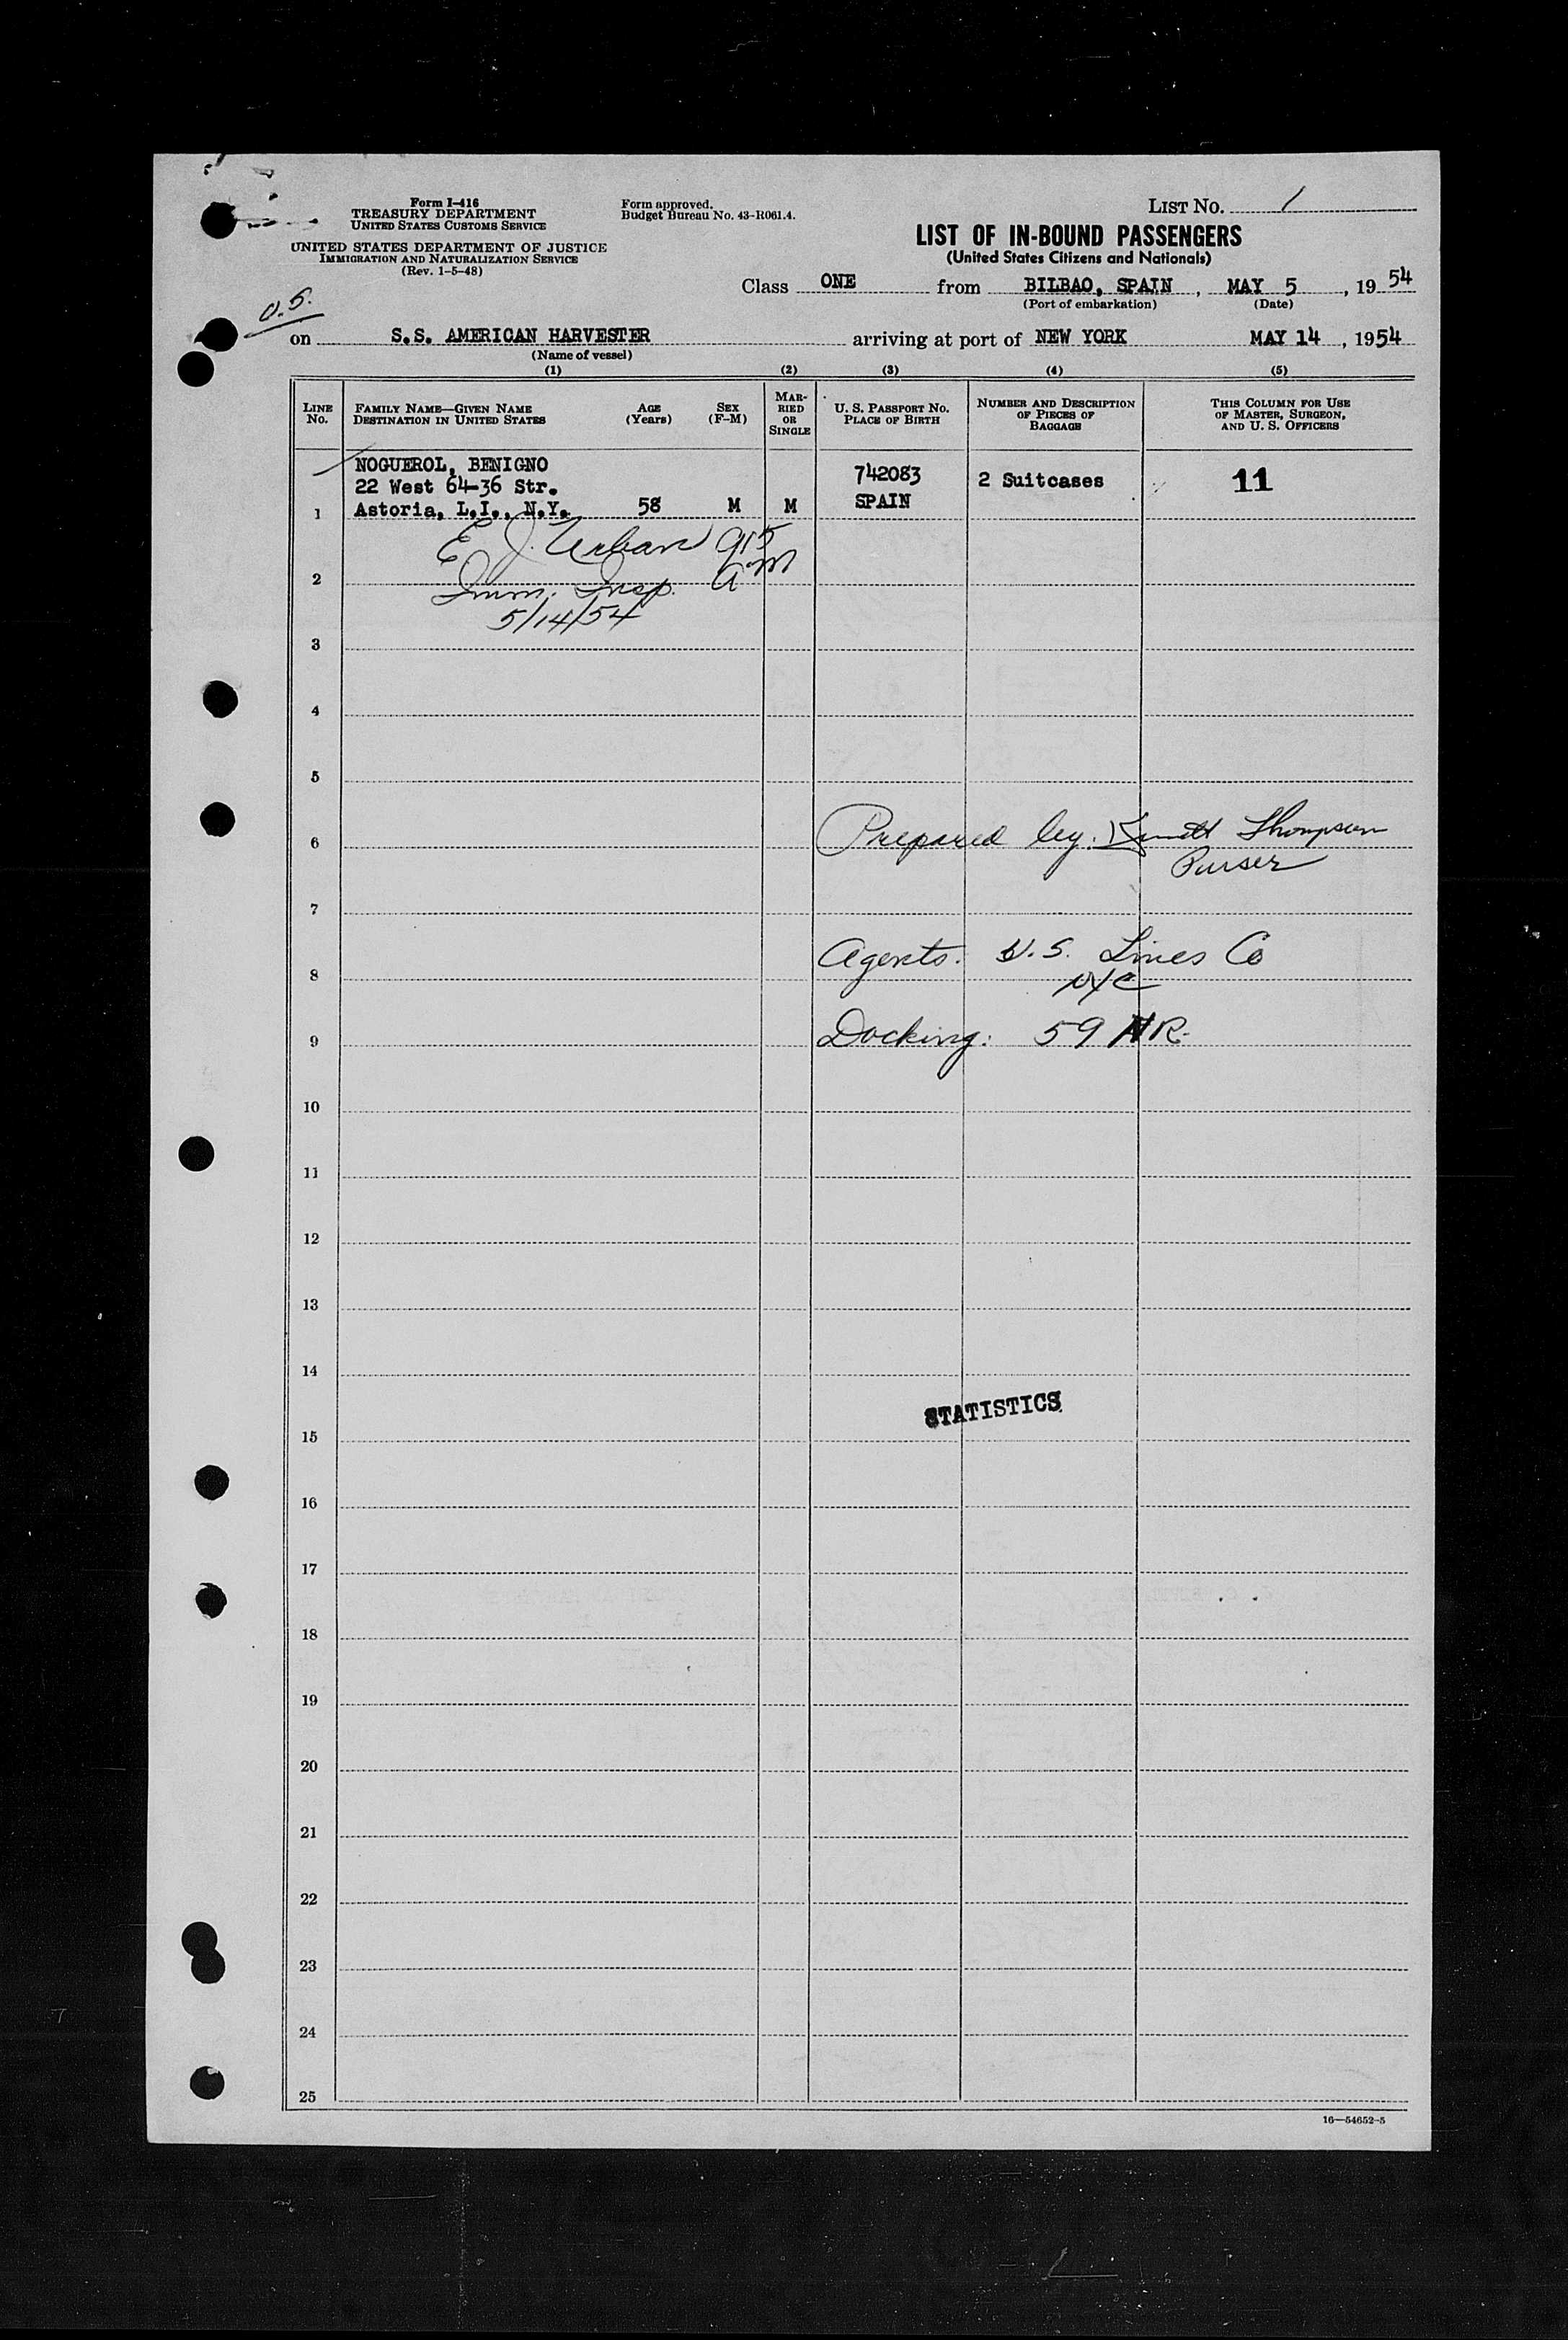 Form I-416
TREASURY DEPARTMENT
UNITED STATES CUSTOMS SERVICE
UNITED STATES DEPARTMENT OF JUSTICE
IMMIGRATION AND NATURALIZATION SERVICE
(Rev. 1-5-48)
Form approved.
Budget Bureau No. 43-R061.4.
LIST NO. 1
LIST OF IN-BOUND PASSENGERS
(United States Citizens and Nationals)
Class ONE from BILBAO, SPAIN, MAY 5, 1954
(Port of embarkation) (Date)
U.S.
on S.S. AMERICAN HARVESTER arriving at port of NEW YORK MAY 14, 1954
(Name of vessel)
(1) (2) (3) (4) (5)
LINE NO.
FAMILY NAME—GIVEN NAME
DESTINATION IN UNITED STATES
AGE
(Years)
SEX
(F-M)
MAR-
RIED
OR
SINGLE
U. S. PASSPORT NO.
PLACE OF BIRTH
NUMBER AND DESCRIPTION
OF PIECES OF
BAGGAGE
THIS COLUMN FOR USE
OF MASTER, SURGEON,
AND U. S. OFFICERS
NOGUEROL, BENIGNO
22 West 64-36 Str.
1 Astoria, L.I., N.Y. 58 M M
742083
SPAIN
2 Suitcases
11
E J. Urban 915
AM
2 Imm. Insp.
5/14/54
3
4
5
6 Prepared by. Thompson
Purser
7
Agents. U.S. Lines Co
8 NYC
9 Docking: 59 NR.
10
11
12
13
14
STATISTICS
15
16
17
18
19
20
21
22
23
24
25
16—54652-5